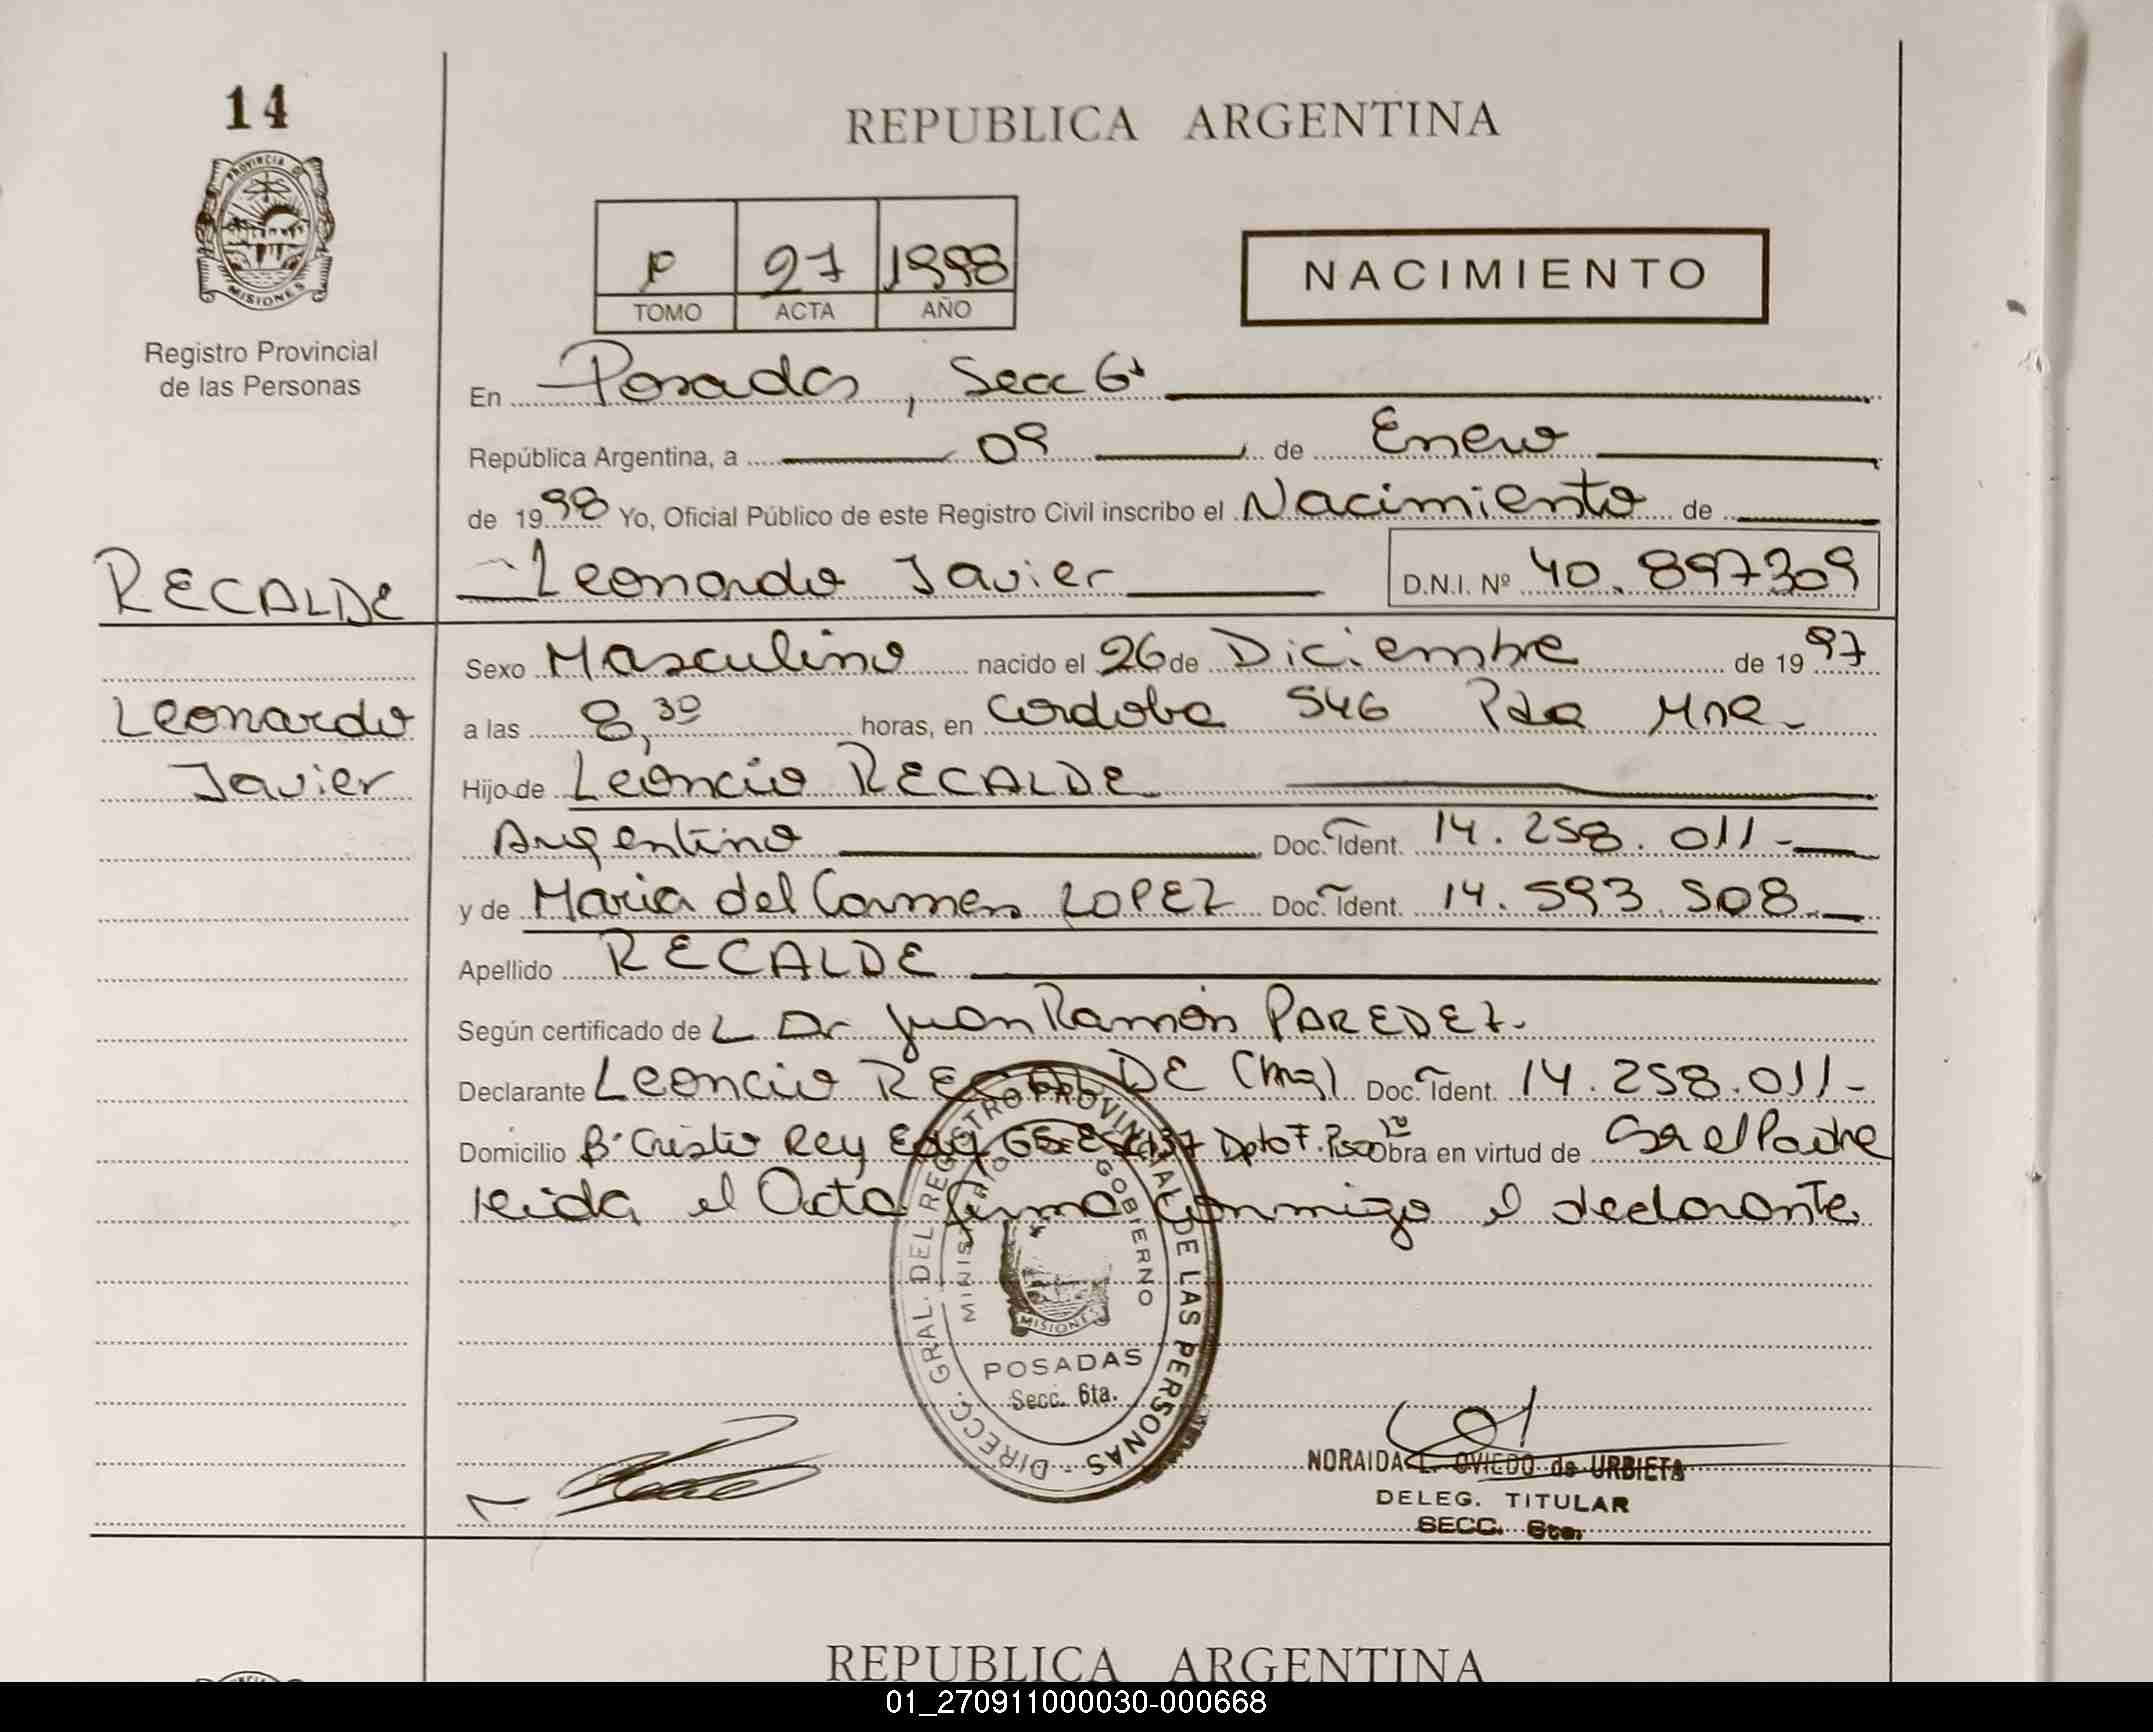 14
PROVINCIA DE
MISIONES
Registro Provincial
de las Personas
REPUBLICA ARGENTINA
P 27 1998
TOMO ACTA AÑO
NACIMIENTO
En Posadas, Secc 6ª
República Argentina, a 09 de Enero
de 1998 Yo, Oficial Público de este Registro Civil inscribo el Nacimiento de
RECALDE
Leonardo Javier D.N.I. Nº 40.897309
Sexo Masculino nacido el 26 de Diciembre de 1997
Leonardo
Javier
a las 8,30 horas, en Cordoba 546 Pdas Mnes.
Hijo de Leoncio RECALDE
Argentino Doc. Ident. 14.258.011-
y de Maria del Carmen LOPEZ Doc. Ident. 14.593.508-
Apellido RECALDE
Según certificado de L Dr Juan Ramón PAREDEZ.
Declarante Leoncio RECALDE Doc. Ident. 14.258.011-
Domicilio Bº Cristo Rey Dpto F. Piso 1º Obra en virtud de Ser el Padre
leida el Acta firma conmigo el declarante
DIRECC. GRAL. DEL REGISTRO PROVINCIAL DE LAS PERSONAS -
MINISTERIO GOBIERNO
MISIONES
POSADAS
Secc. 6ta.
NORAIDA L. OVIEDO de URBIETA
DELEG. TITULAR
SECC. 6ta.
REPUBLICA ARGENTINA
01_270911000030-000668